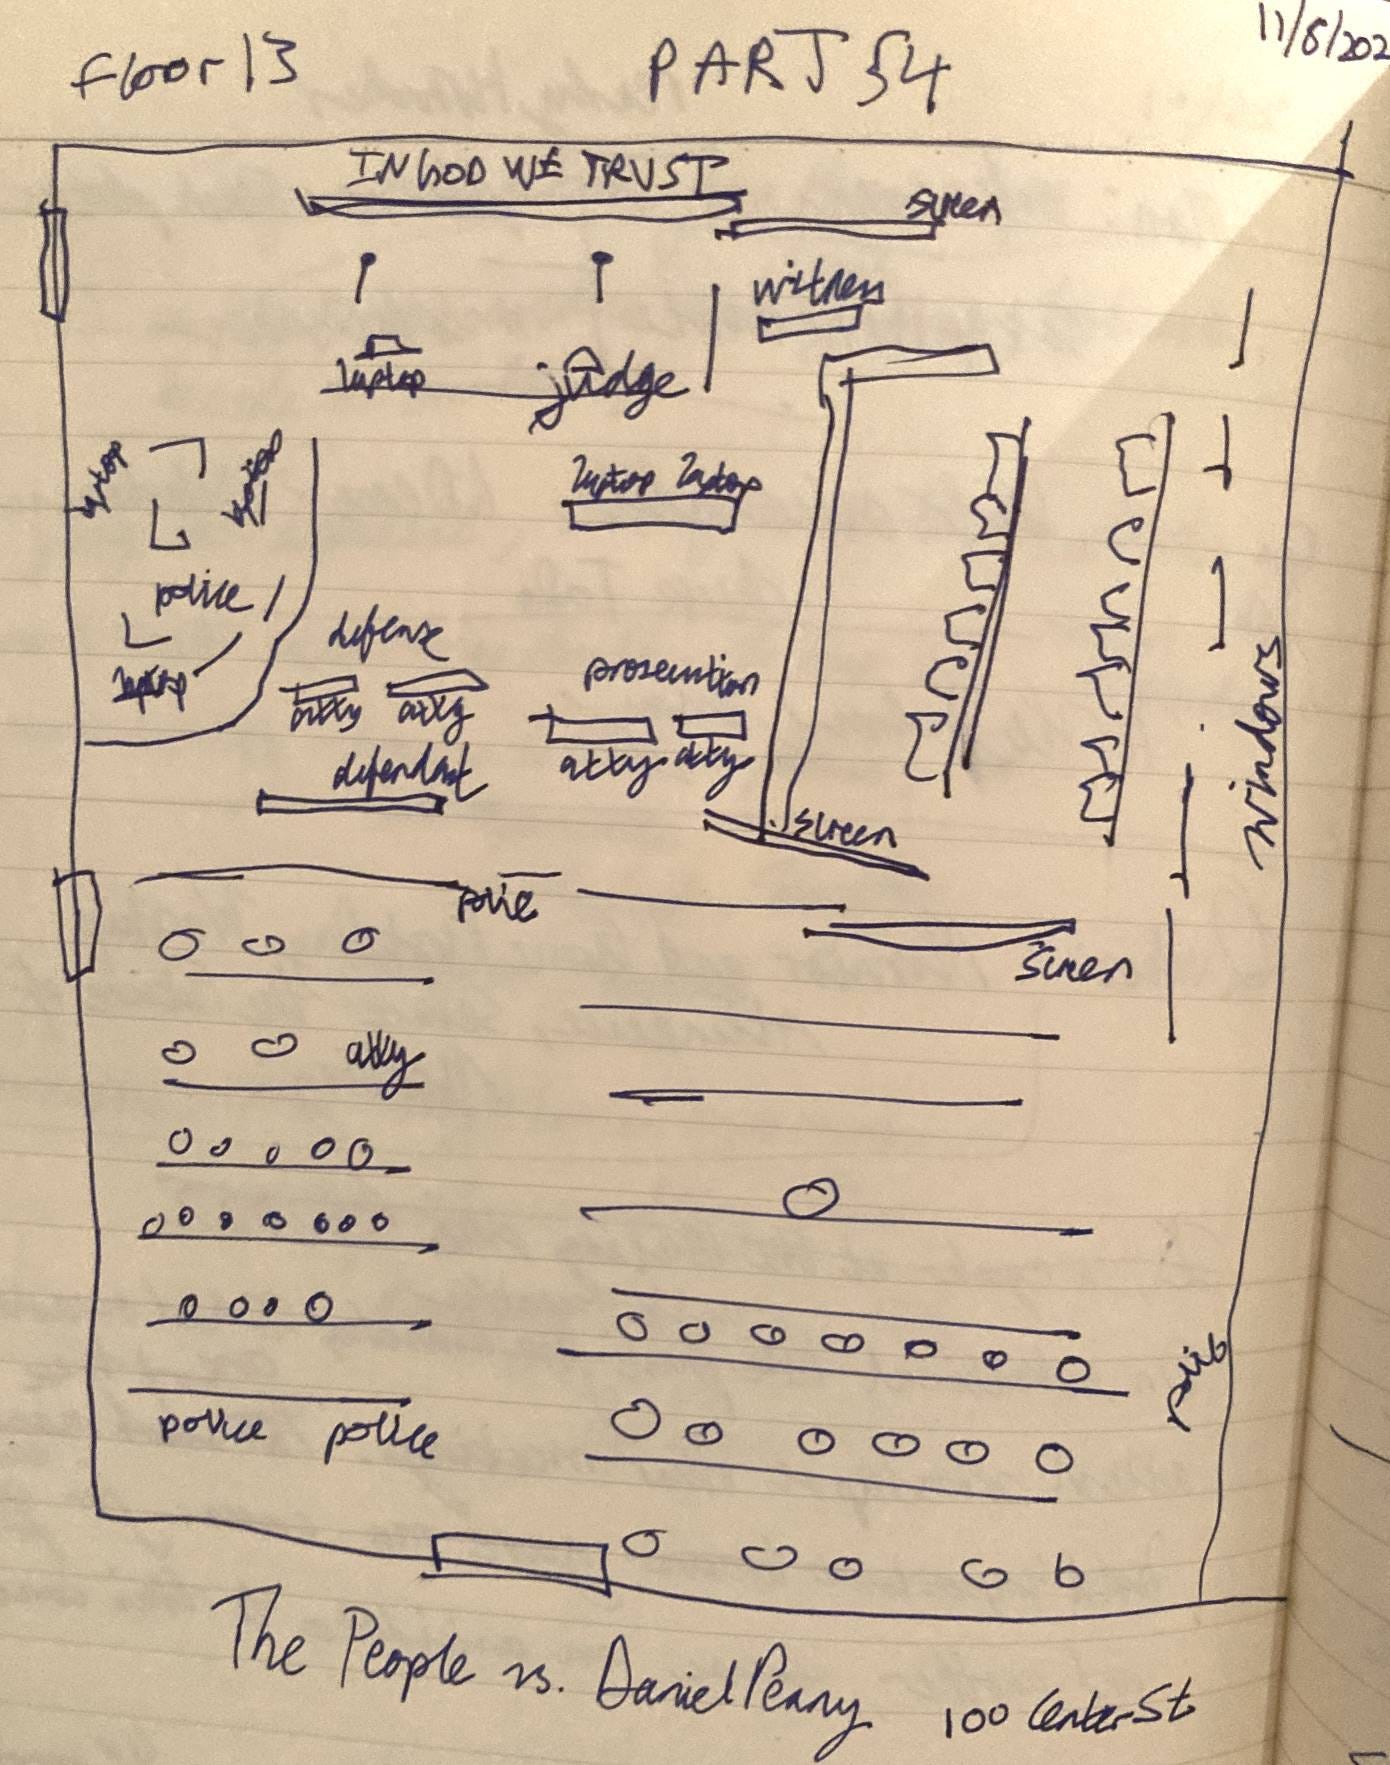 floor 13 PART 54 11/8/202
IN GOD WE TRUST
screen
witness
laptop judge
laptop laptop
laptop laptop
police
laptop
defense
atty atty
prosecution
atty atty
defendant
screen
police
screen
windows
atty
police
police police
The People vs. Daniel Penny 100 Center St